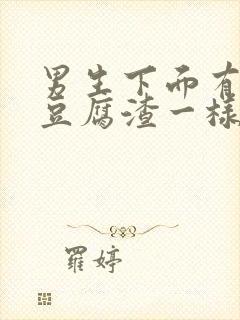 男生下面有
豆腐渣一样
羅婷